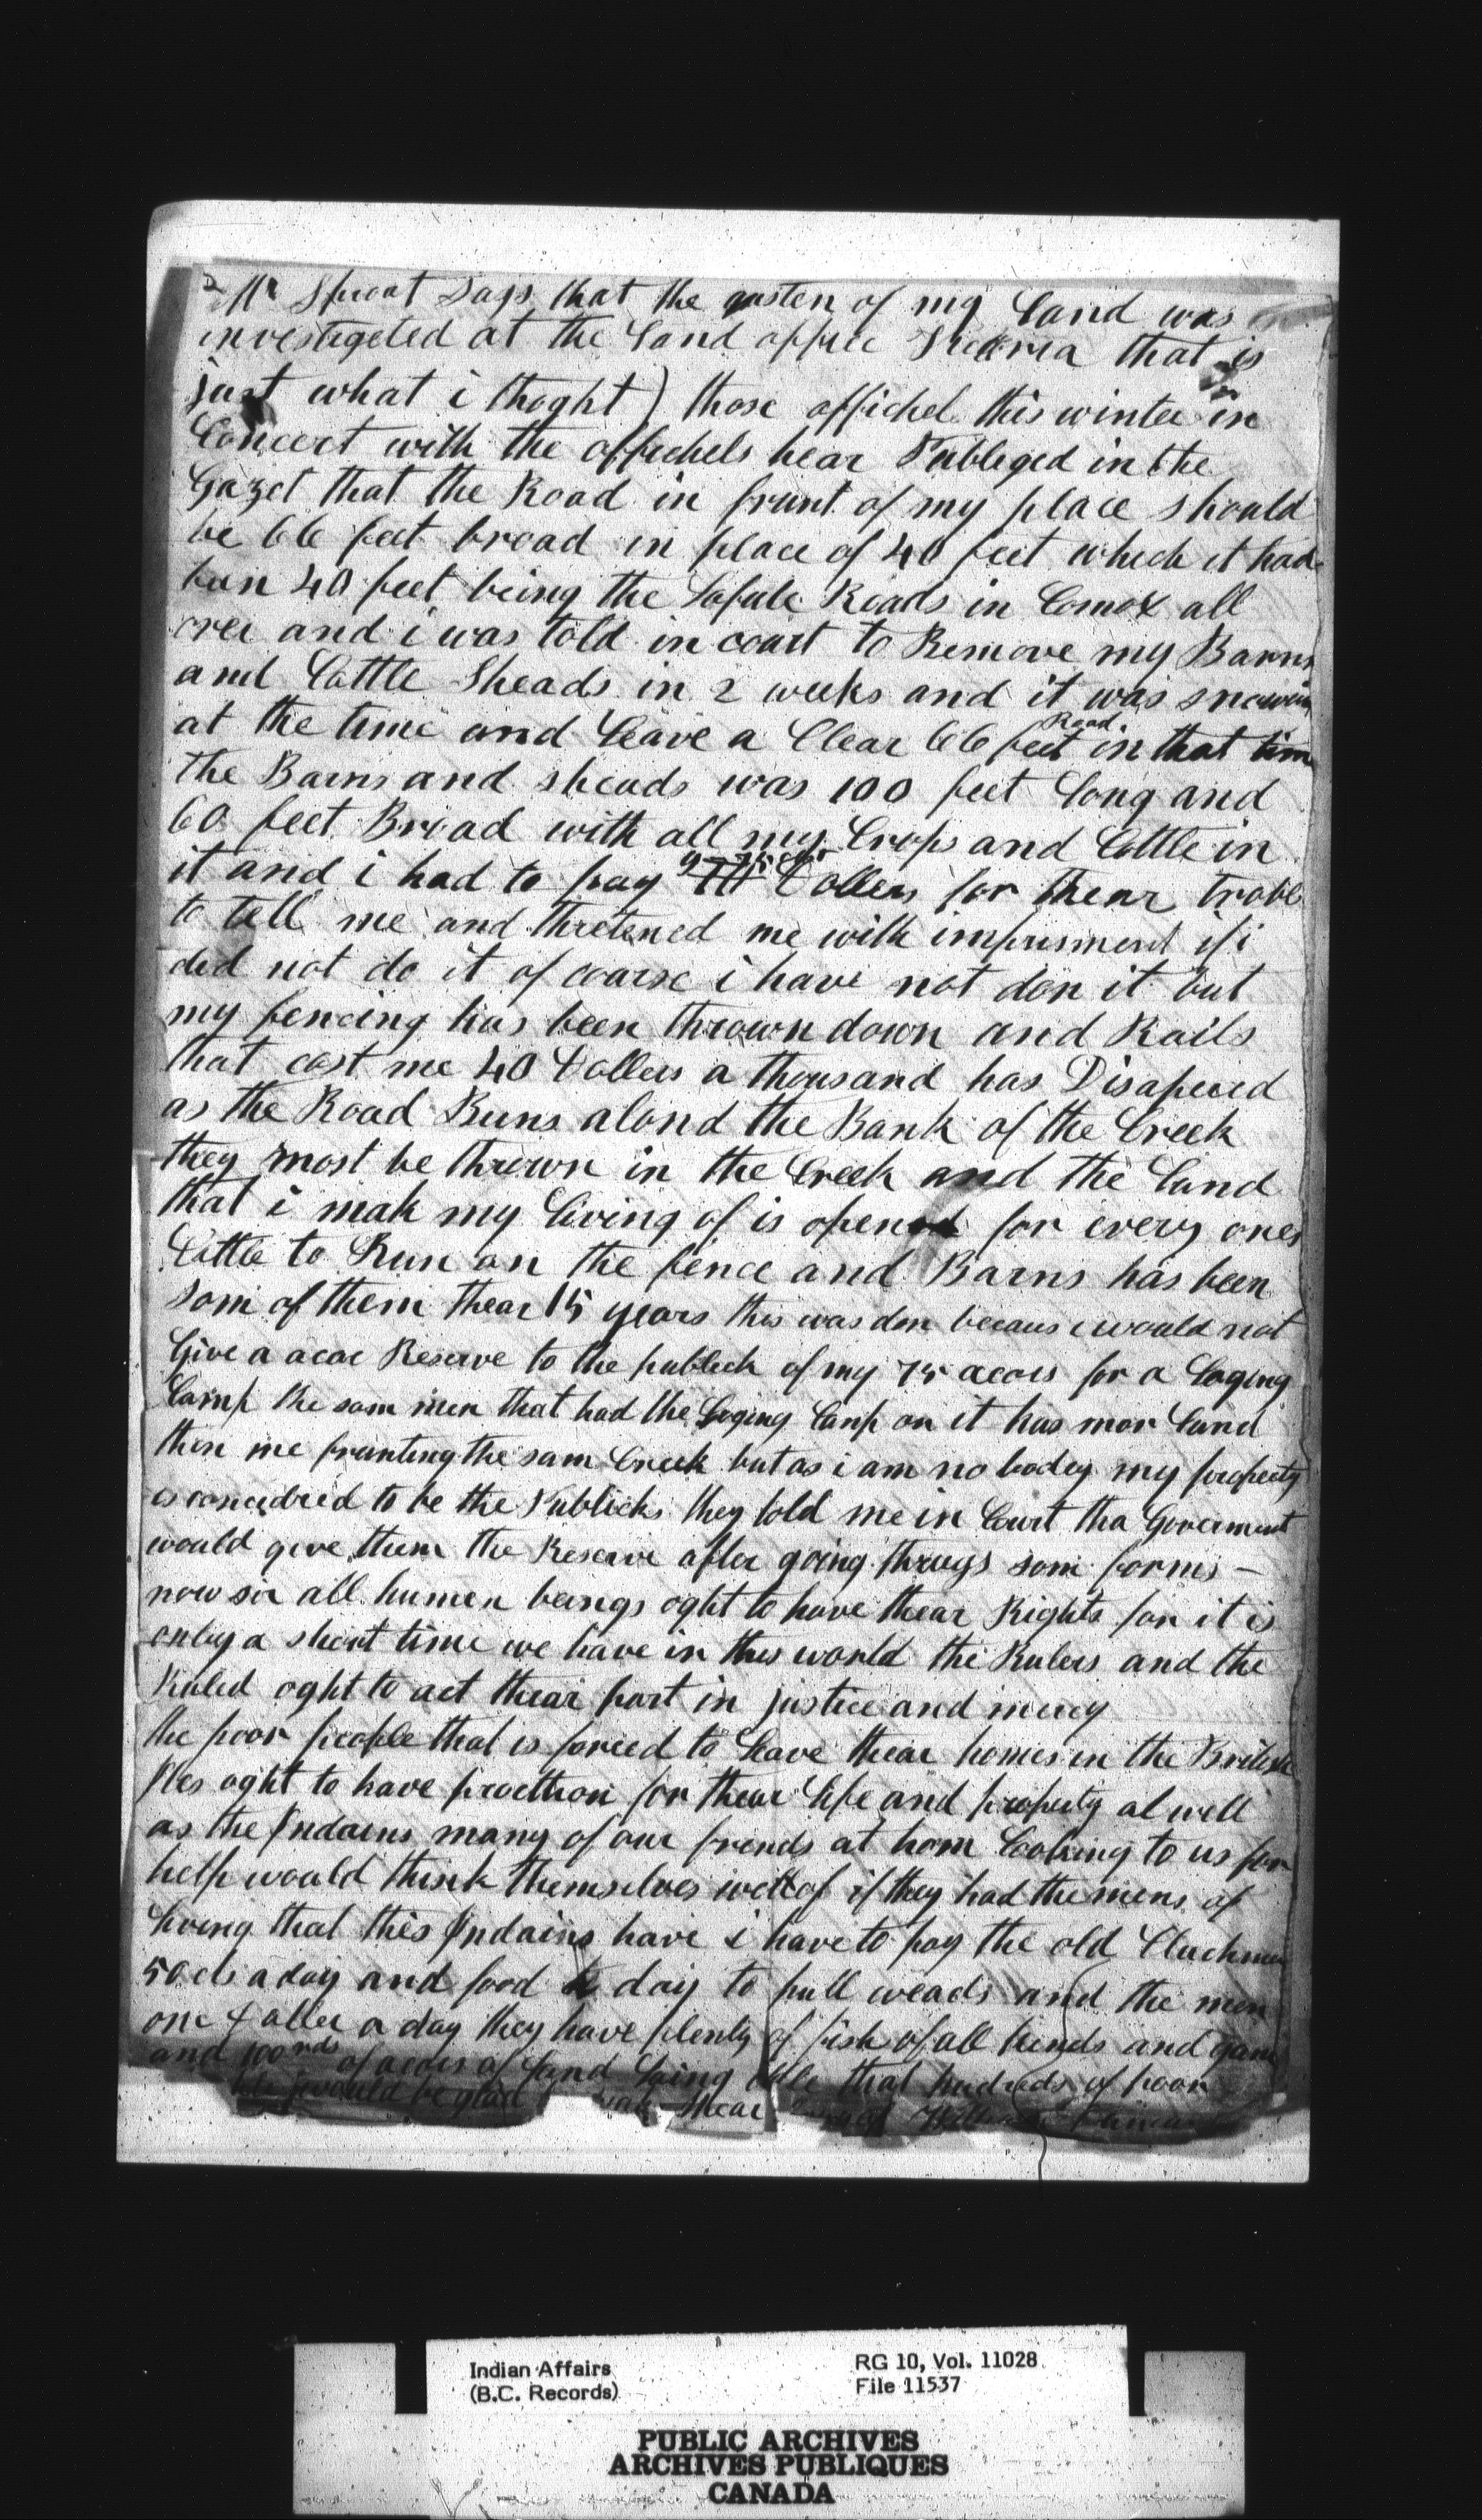 Mr Sproat Says that the of my Land was
investegeted at the Land offiee Victoria that is
just what i thoght) those offichel this winter in
Concert with the offichels hear Publeged in the
Gazet that the Road in frunt of my place should
be 66 feet broad in place of 40 feet which it had
bun 40 feet being the Roads in Comox all
over and i was told in court to Remove my Barns
and Cattle Sheads in 2 weeks and it was snowin
at the time and Leave a Clear 66 feet Road in that tim
the Barns and sheads was 100 feet Long and
60 feet Broad with all my Crops and Cattle in
it and i had to pay Dollers for thear troble
to tell me and thretened me with imprisment if i
did not do it of coarse i have not don it but
my fencing has been thrown down and Rails
that cost me 40 Dollers a thousand has Disapeed
as the Road Runs alond the Bank of the Creek
they most be thrown in the Creek and the Land
that i mak my Living of is opened for every ones
Cattle to Run on the fence and Barns has been
som of them thear 15 years this was don becaus i would not
Give a acar Reserve to the publick of my 75 acars for a Loging
Camp the sam men that had the Loging Camp on it has mor Land
then me frunting the sam Creek but as i am no bodey my property
is concedred to be the Publicks they told me in Court tha Goverment
would give them the Reserve after going thrugs som forms –
now sir all humen beings oght to have thear Rights for it is
onley a short time we have in this world the Rulers and the
Ruled oght to act thear part in justice and mercy
the poor people that is forced to Leave thear homes in the British
Iles oght to have proethion for thear Life and property al well
as the Indains many of our frends at hom Looking to us for
help would think themselves well of if they had the mens of
Living that this Indains have i have to pay the old Cluchmen
50 cts a day and food a day to pull weads and the men
one Doller a day they have plenty of fish of all kends and gam
and 100rds of acars of Land Laing idle that hudreds of poor
would be glad thear
Indian Affairs
(B.C. Records)
RG 10, Vol. 11028
File 11537
PUBLIC ARCHIVES
ARCHIVES PUBLIQUES
CANADA